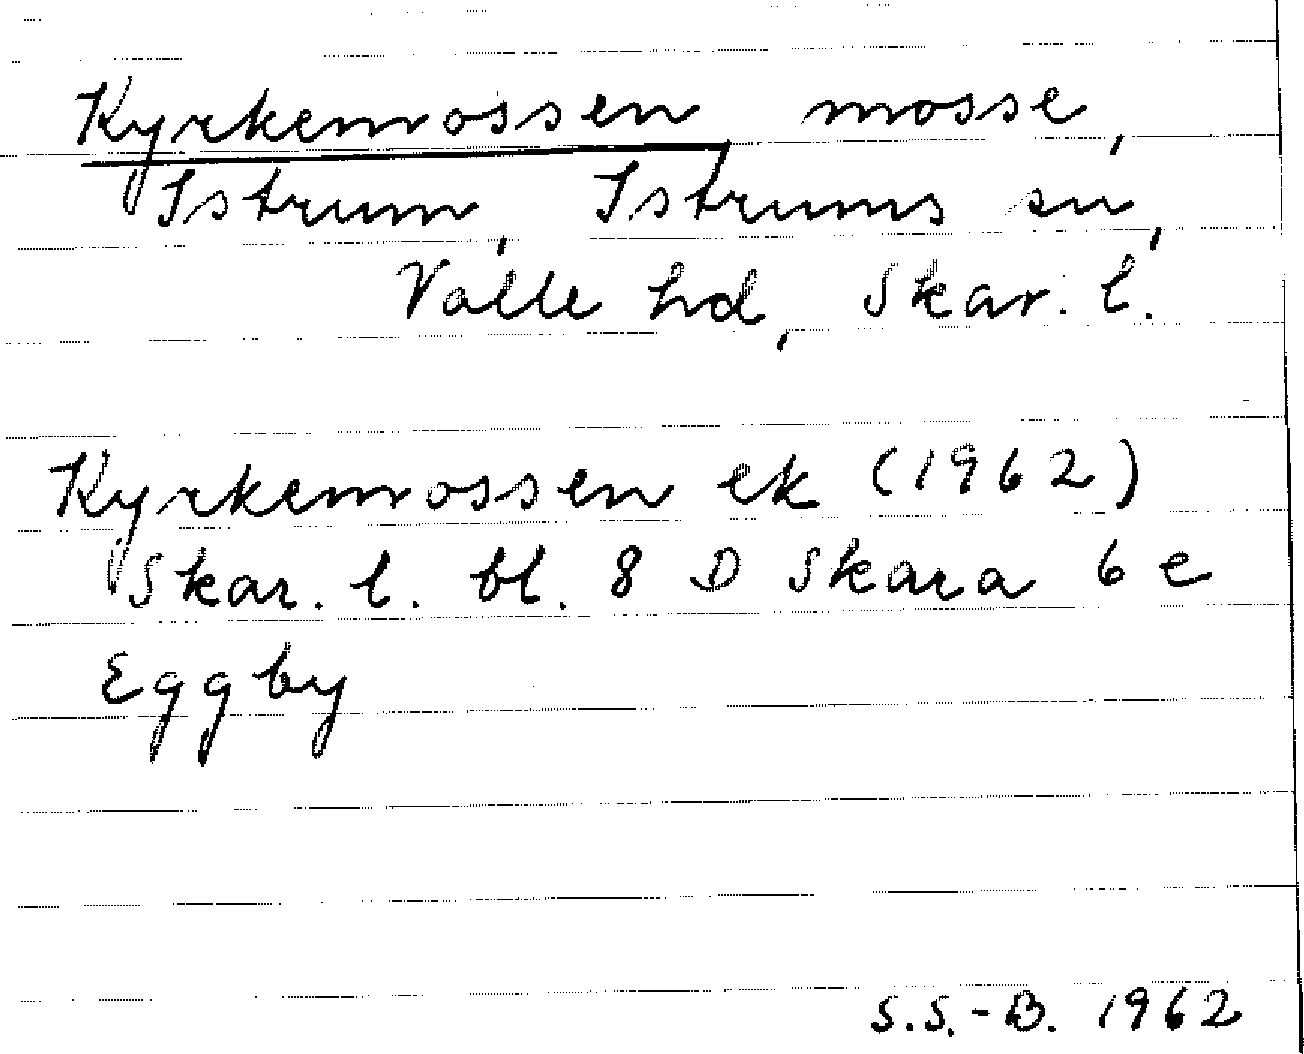 Kyrkemossen, mosse,
Istrum, Istrums sn,
Valle hd, Skar. l.
Kyrkemossen ek (1962)
Skar. l. bl. 8 D Skara 6 e
Eggby
S.S.-B. 1962